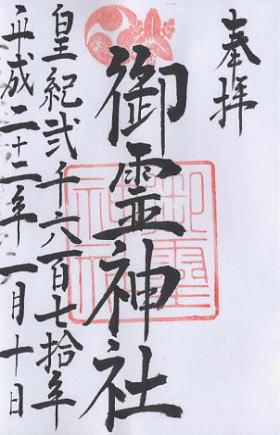 奉拝
御霊神社
皇紀弐千六百七拾年
平成二十二年一月十日